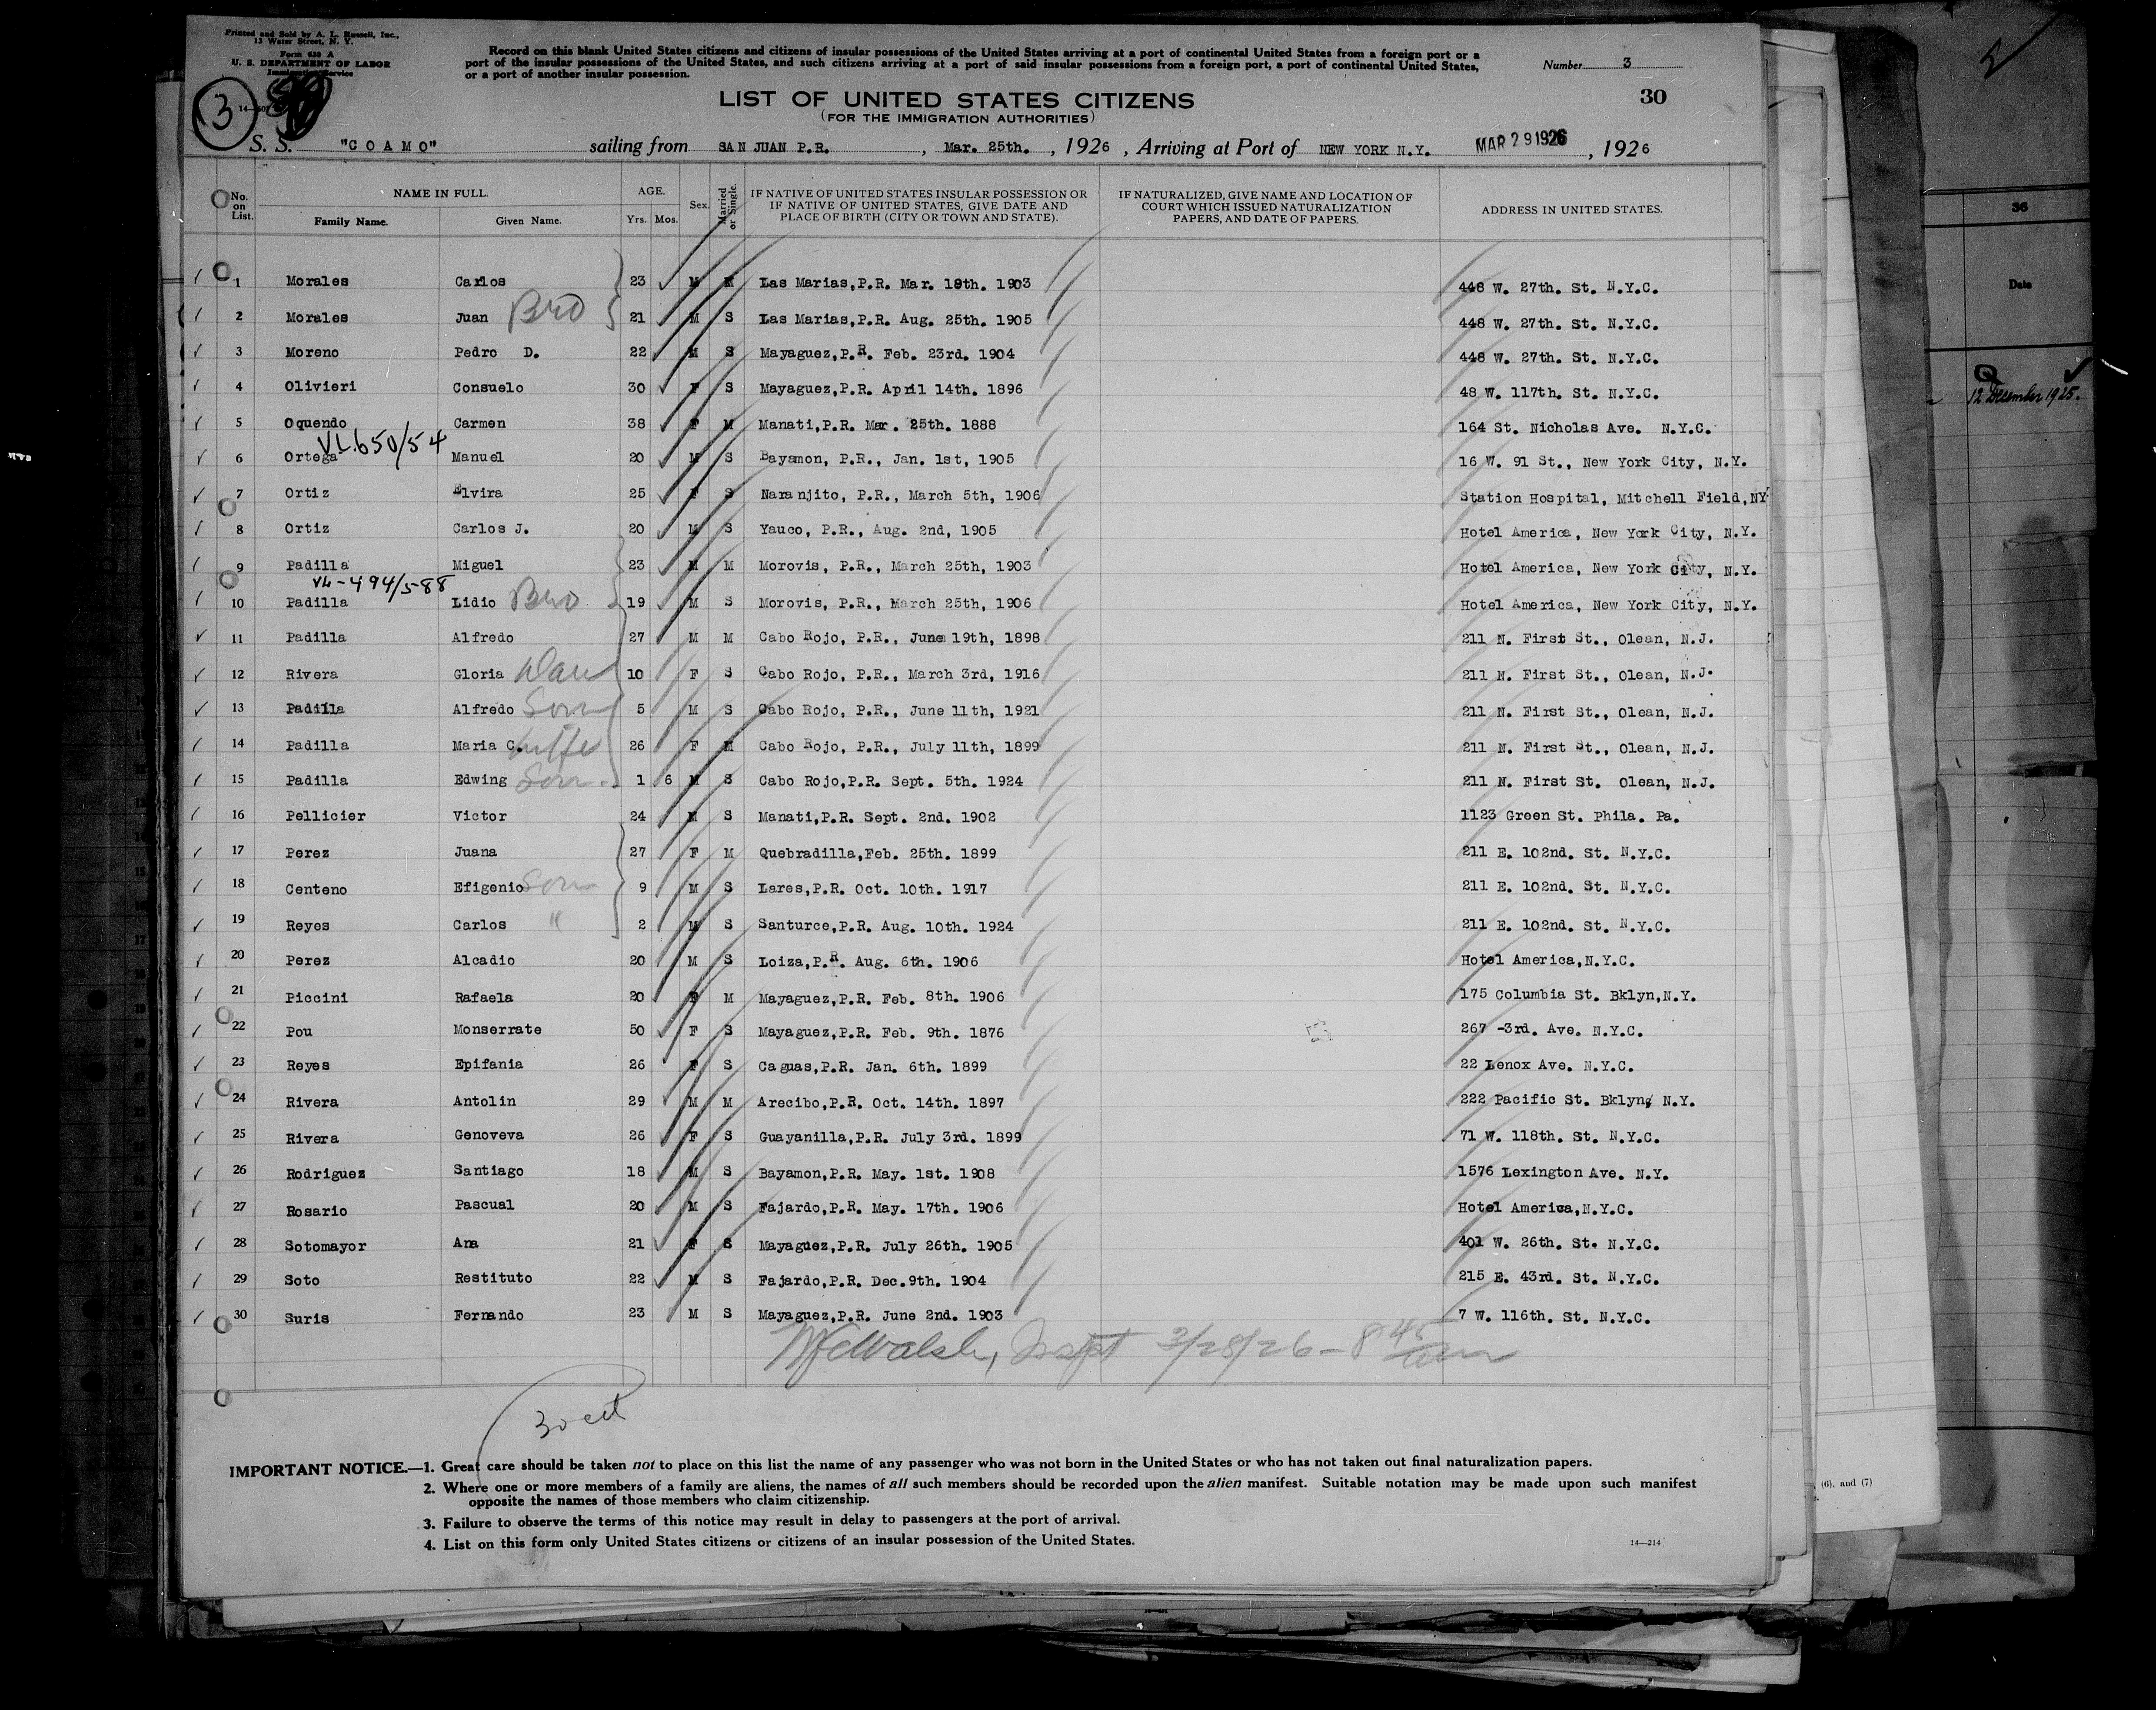 Printed and Sold by A. L. Russell, Inc.,
13 Water Street, N. Y.
Form 630 A
U. S. DEPARTMENT OF LABOR
Immigration Service
3
Record on this blank United States citizens and citizens of insular possessions of the United States arriving at a port of continental United States from a foreign port or a
port of the insular possessions of the United States, and such citizens arriving at a port of said insular possessions from a foreign port, a port of continental United States,
or a port of another insular possession.
Number 3
LIST OF UNITED STATES CITIZENS
30
(FOR THE IMMIGRATION AUTHORITIES)
S. S. "COAMO" sailing from SAN JUAN P.R. , Mar. 25th. , 1926 , Arriving at Port of NEW YORK N.Y. MAR 29 1926 , 1926
No. on List. NAME IN FULL. Family Name. Given Name. AGE. Yrs. Mos. Sex. Married or Single. IF NATIVE OF UNITED STATES INSULAR POSSESSION OR IF NATIVE OF UNITED STATES, GIVE DATE AND PLACE OF BIRTH (CITY OR TOWN AND STATE). IF NATURALIZED, GIVE NAME AND LOCATION OF COURT WHICH ISSUED NATURALIZATION PAPERS, AND DATE OF PAPERS. ADDRESS IN UNITED STATES.
1 Morales Carlos 23 M M Las Marias,P.R. Mar. 18th. 1903 448 W. 27th. St. N.Y.C.
2 Morales Juan Bro 21 M S Las Marias,P.R. Aug. 25th. 1905 448 W. 27th. St. N.Y.C.
3 Moreno Pedro D. 22 M S Mayaguez,P.R. Feb. 23rd. 1904 448 W. 27th. St. N.Y.C.
4 Olivieri Consuelo 30 F S Mayaguez,P.R. April 14th. 1896 48 W. 117th. St. N.Y.C.
5 Oquendo Carmen 38 F M Manati,P.R. Mar. 25th. 1888 164 St. Nicholas Ave. N.Y.C.
VL650/54
6 Ortega Manuel 20 M S Bayamon, P.R., Jan. 1st, 1905 16 W. 91 St., New York City, N.Y.
7 Ortiz Elvira 25 F S Naranjito, P.R., March 5th, 1906 Station Hospital, Mitchell Field,NY
8 Ortiz Carlos J. 20 M S Yauco, P.R., Aug. 2nd, 1905 Hotel America, New York City, N.Y.
9 Padilla Miguel 23 M M Morovis, P.R., March 25th, 1903 Hotel America, New York City, N.Y.
VL-494/5-88
10 Padilla Lidio Bro 19 M S Morovis, P.R., March 25th, 1906 Hotel America, New York City, N.Y.
11 Padilla Alfredo 27 M M Cabo Rojo, P.R., June 19th, 1898 211 N. First St., Olean, N.J.
12 Rivera Gloria Dau 10 F S Cabo Rojo, P.R., March 3rd, 1916 211 N. First St., Olean, N.J.
13 Padilla Alfredo Son 5 M S Cabo Rojo, P.R., June 11th, 1921 211 N. First St., Olean, N.J.
14 Padilla Maria C. wife 26 F M Cabo Rojo, P.R., July 11th, 1899 211 N. First St., Olean, N.J.
15 Padilla Edwing Son 1 6 M S Cabo Rojo,P.R. Sept. 5th. 1924 211 N. First St. Olean, N.J.
16 Pellicier Victor 24 M S Manati,P.R. Sept. 2nd. 1902 1123 Green St. Phila. Pa.
17 Perez Juana 27 F M Quebradilla,Feb. 25th. 1899 211 E. 102nd. St. N.Y.C.
18 Centeno Efigenio Son 9 M S Lares,P.R. Oct. 10th. 1917 211 E. 102nd. St. N.Y.C.
19 Reyes Carlos " 2 M S Santurce,P.R. Aug. 10th. 1924 211 E. 102nd. St. N.Y.C.
20 Perez Alcadio 20 M S Loiza,P.R. Aug. 6th. 1906 Hotel America,N.Y.C.
21 Piccini Rafaela 20 F M Mayaguez,P.R. Feb. 8th. 1906 175 Columbia St. Bklyn,N.Y.
22 Pou Monserrate 50 F S Mayaguez,P.R. Feb. 9th. 1876 267 -3rd. Ave. N.Y.C.
23 Reyes Epifania 26 F S Caguas,P.R. Jan. 6th. 1899 22 Lenox Ave. N.Y.C.
24 Rivera Antolin 29 M M Arecibo,P.R. Oct. 14th. 1897 222 Pacific St. Bklyn, N.Y.
25 Rivera Genoveva 26 F S Guayanilla,P.R. July 3rd. 1899 71 W. 118th. St. N.Y.C.
26 Rodriguez Santiago 18 M S Bayamon,P.R. May. 1st. 1908 1576 Lexington Ave. N.Y.
27 Rosario Pascual 20 M S Fajardo,P.R. May. 17th. 1906 Hotel America,N.Y.C.
28 Sotomayor Ana 21 F S Mayaguez,P.R. July 26th. 1905 401 W. 26th. St. N.Y.C.
29 Soto Restituto 22 M S Fajardo,P.R. Dec.9th. 1904 215 E. 43rd. St. N.Y.C.
30 Suris Fernando 23 M S Mayaguez,P.R. June 2nd. 1903 7 W. 116th. St. N.Y.C.
Walsh, Inspt 3/28/26 - 8 45 am
30 cit
IMPORTANT NOTICE.—1. Great care should be taken not to place on this list the name of any passenger who was not born in the United States or who has not taken out final naturalization papers.
2. Where one or more members of a family are aliens, the names of all such members should be recorded upon the alien manifest. Suitable notation may be made upon such manifest
opposite the names of those members who claim citizenship.
3. Failure to observe the terms of this notice may result in delay to passengers at the port of arrival.
4. List on this form only United States citizens or citizens of an insular possession of the United States.
14—214
36
Date
12 December 1925.
(6), and (7)